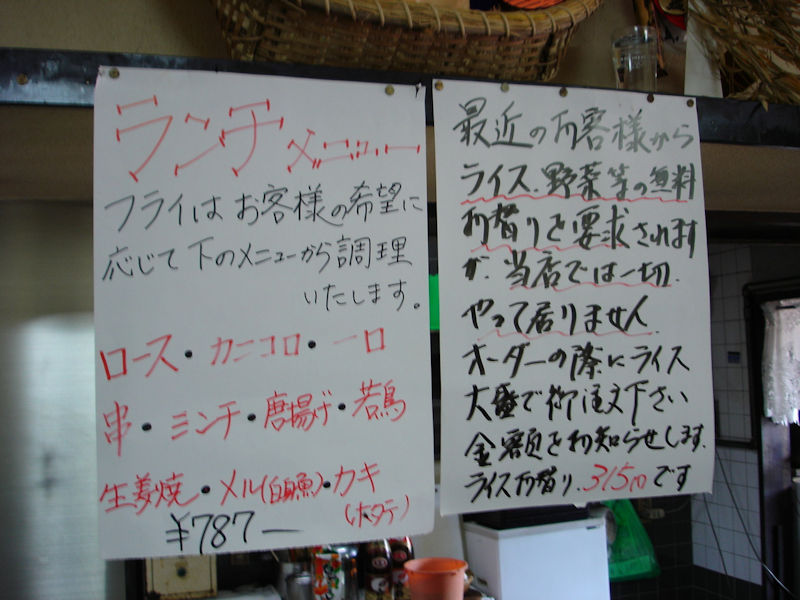 ランチメニュー
フライはお客様の希望に
応じて下のメニューから調理
いたします。
ロース・カニコロ・一口
串・ミンチ・唐揚げ・若鳥
生姜焼・メルル(白身魚)・カキ
(ホタテ)
¥787ー
最近のお客様から
ライス.野菜等の無料
お替りを要求されます
が.当店では一切.
やって居りません.
オーダーの際にライス
大盛で御注文下さい
金額をお知らせします.
ライスお替り.315円です